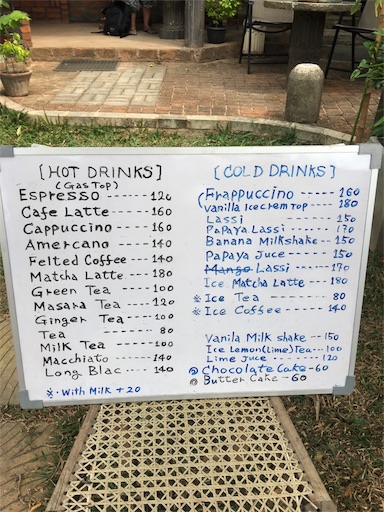 [HOT DRINKS]
(Gas Top)
Espresso ------ 120
Cafe Latte ----- 160
Cappuccino ---- 160
Amercano ---- 140
Felted Coffee --- 140
Matcha Latte ---- 180
Green Tea ---- 100
Masara Tea ---- 120
Ginger Tea ---- 100
Tea ---- 80
Milk Tea ---- 100
Macchiato ---- 140
Long Blac ---- 140
※ · With Milk + 20
[COLD DRINKS]
Frappuccino ----- 160
Vanilla Icecrem top --- 180
Lassi ---- 150
PaPaya Lassi ----- 170
Banana Milkshake -- 150
Papaya Juce ---- 150
Mango Lassi ---- 170
Ice Matcha Latte ---- 180
※ Ice Tea ---- 80
※ Ice Coffee ---- 140
Vanilla Milk shake --- 150
Ice Lemon(Lime)Tea --- 100
Lime Juce ------ 120
@ Chocolate Cake - 60
@ Butter Cake - 60